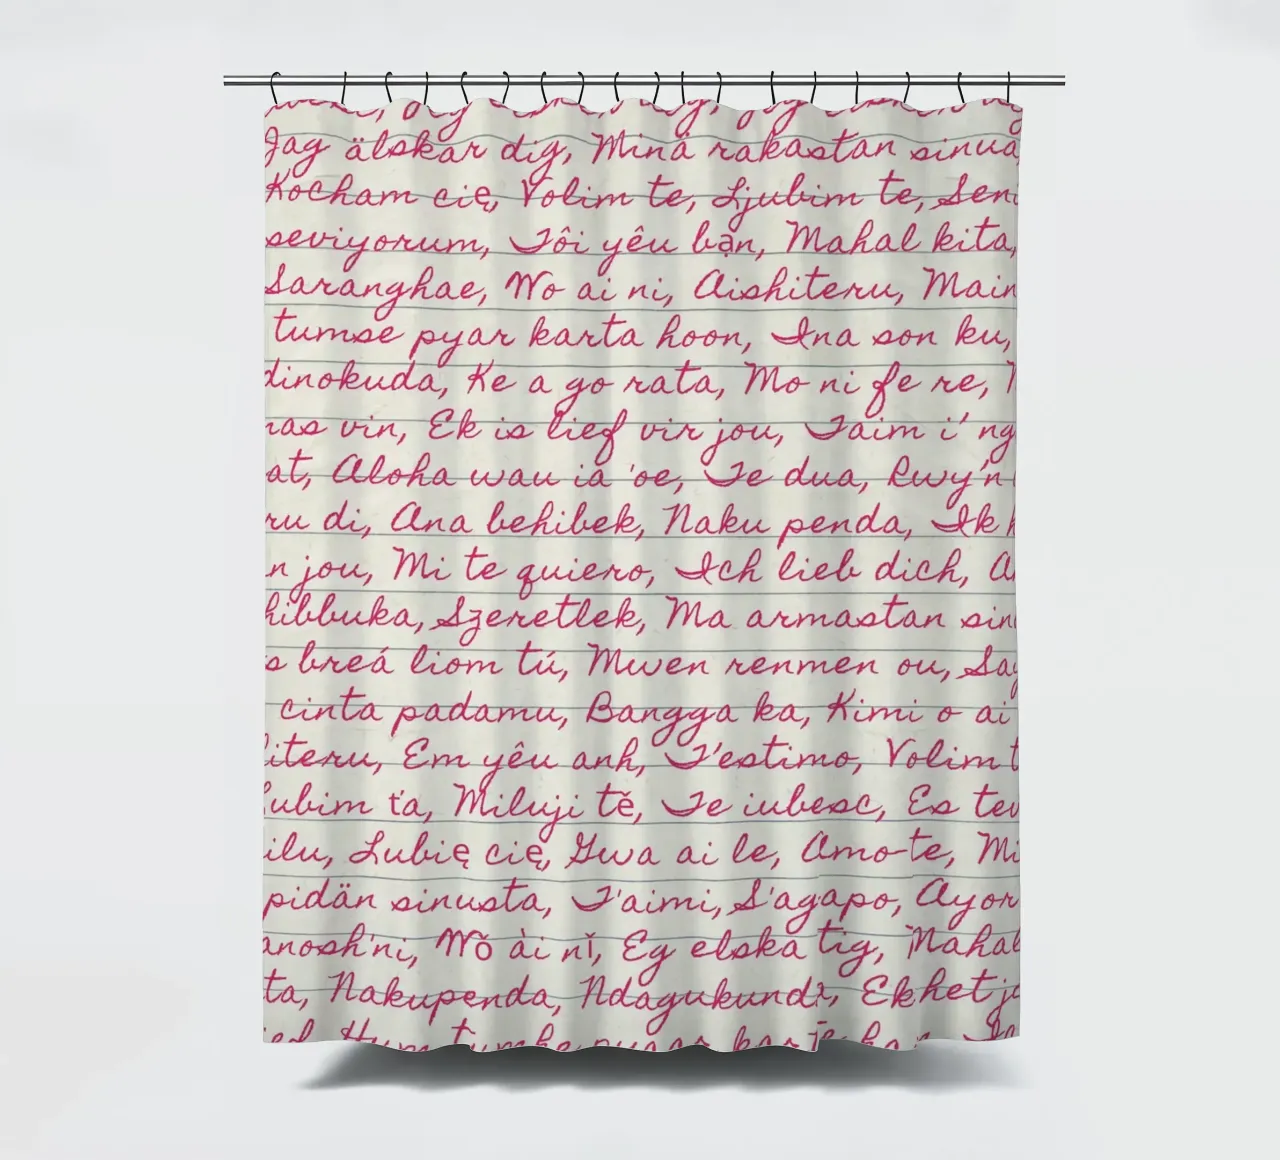 Jag älskar dig, Minä rakastan sinua
Kocham cię, Volim te, Ljubim te, Seni
seviyorum, Tôi yêu bạn, Mahal kita,
Saranghae, Wo ai ni, Aishiteru, Main
tumse pyar karta hoon, Ina son ku,
dinokuda, Ke a go rata, Mo ni fe re,
nas vin, Ek is lief vir jou, Taim i' ng
at, Aloha wau ia 'oe, Te dua, Rwy'n
ru di, Ana behibek, Naku penda, Ik h
n jou, Mi te quiero, Ich lieb dich, A
hibbuka, Szeretlek, Ma armastan sin
s breá liom tú, Mwen renmen ou, Say
cinta padamu, Bangga ka, Kimi o ai
iteru, Em yêu anh, T'estimo, Volim t
ubim ťa, Miluji tě, Te iubesc, Es tev
ilu, Lubię cię, Gwa ai le, Amo-te, Mi
pidän sinusta, T'aimi, S'agapo, Ayor
anosh'ni, Wǒ ài nǐ, Eg elska tig, Mahal
ta, Nakupenda, Ndagukunda, Ek het jo